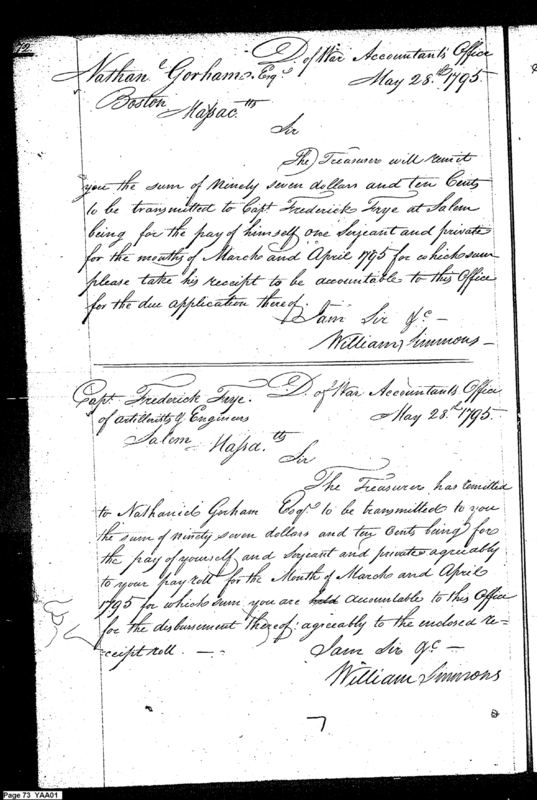 72
D. of War Accountants Office
Nathan.l Gorham. Esq.r May 28.th 1795.
Boston Massac.tts
Sir
The Treasurer will remit
you the sum of Ninety seven dollars and ten Cents
to be transmitted to Capt. Frederick Frye at Salem
being for the pay of himself, one Serjeant and private
for the months of March and April 1795 for which sum
please take his receipt to be accountable to this Office
for the due application thereof.
I am Sir &c —
William Simmons —
Capt. Frederick Frye. D. of War Accountants Office
of Artillerists & Engineers May 28.th 1795.
Salem Massa.tts
Sir
The Treasurer has remitted
to Nathaniel Gorham Esq.r to be transmitted to you
the sum of ninety seven dollars and ten Cents being for
the pay of yourself, and Serjeant and private agreably
to your pay roll for the Month of March and April
1795 for which sum you are held accountable to this Office
for the disbursement thereof: agreeably to the enclosed re=
ceipt roll. — . —
I am Sir &c —
William Simmons
Page 73 YAA01